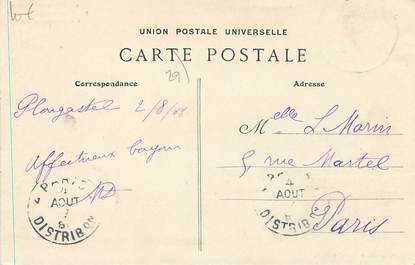 UNION POSTALE UNIVERSELLE
CARTE POSTALE
29
Correspondance
Adresse
Plougastel 2/8/08
Affectueux bonjour
MD
Melle L Marin
5 rue Martel
Paris
4
AOUT
DISTRIBON
4
AOUT
8
DISTRIB